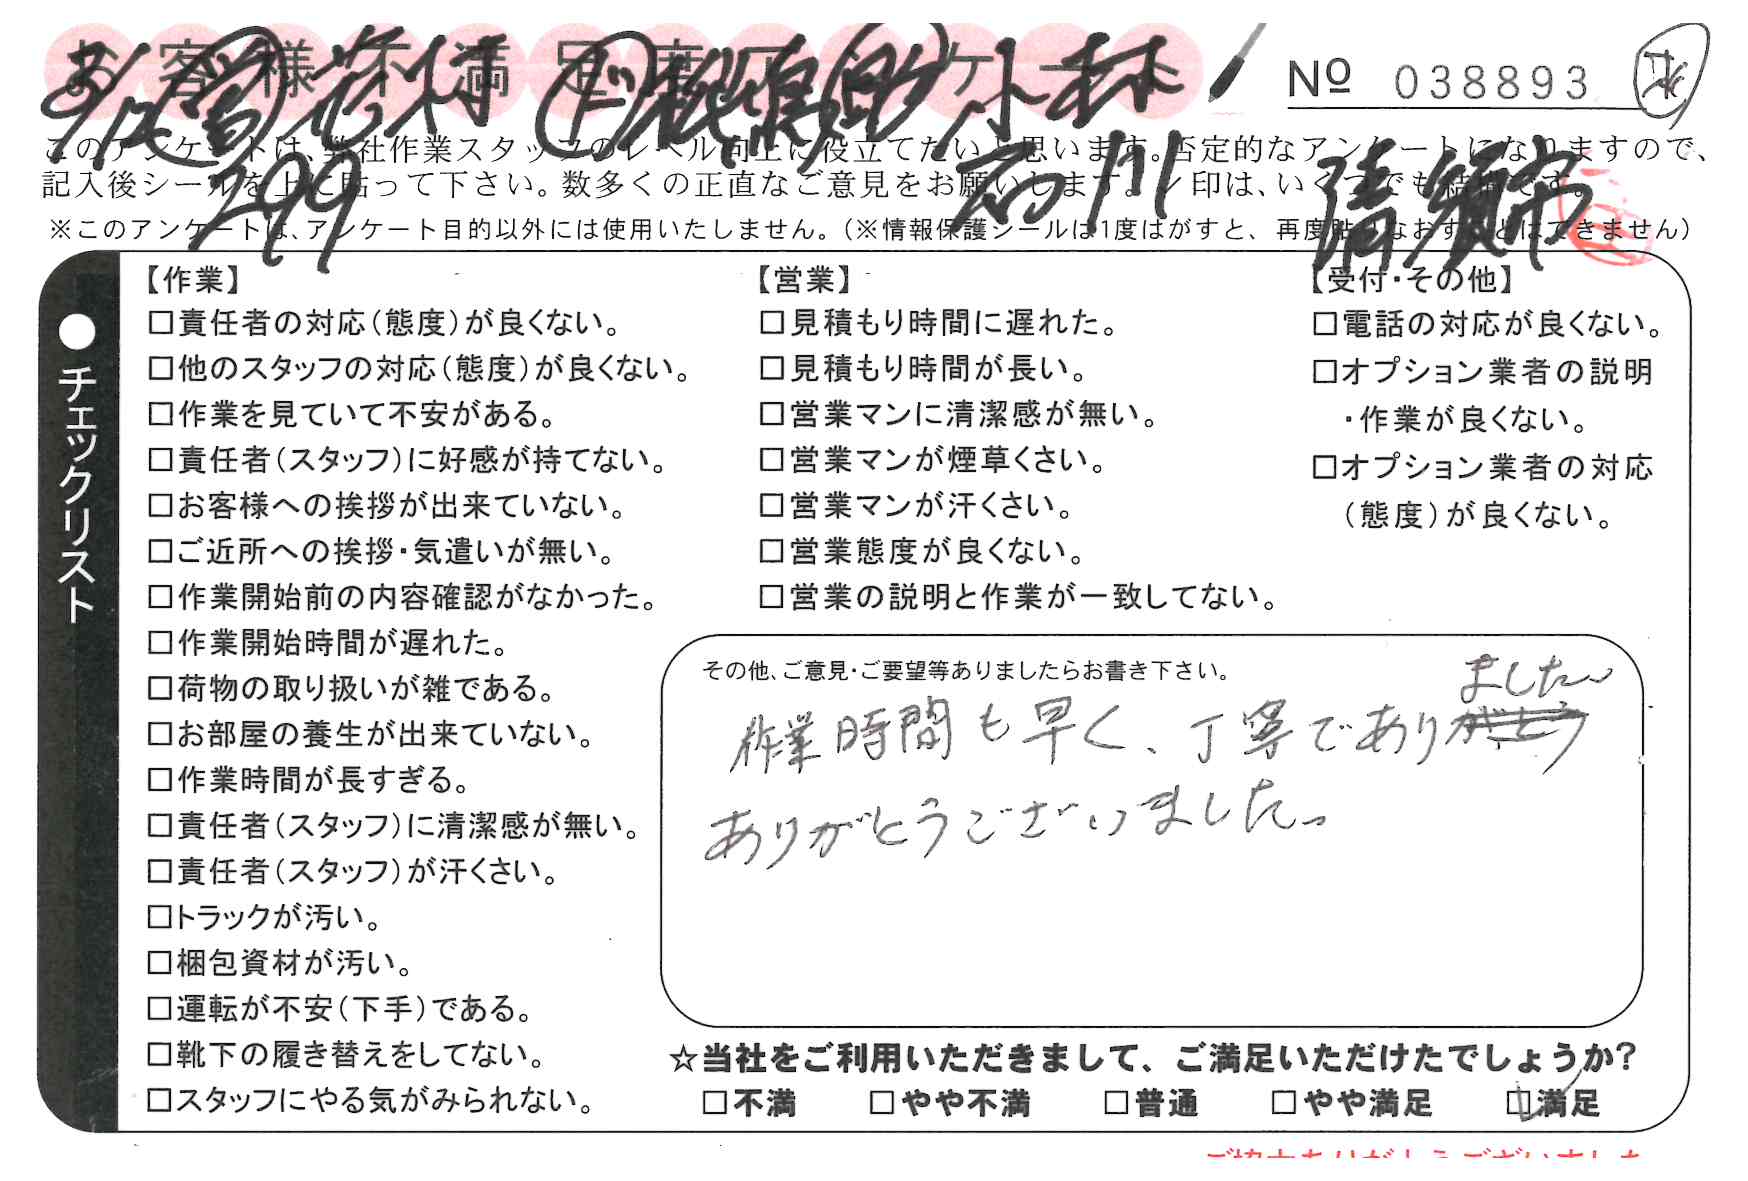 お客様不満足度アンケート
№ 038893
9/12 営 花村 ド 小林
299 石川 清須市
このアンケートは、弊社作業スタッフのレベル向上に役立てたいと思います。否定的なアンケートになりますので、
記入後シールを上に貼って下さい。数多くの正直なご意見をお願いします。✓印は、いくつでも結構です。
※このアンケートは、アンケート目的以外には使用いたしません。(※情報保護シールは1度はがすと、再度貼りなおすことはできません)
●チェックリスト
【作業】
□責任者の対応(態度)が良くない。
□他のスタッフの対応(態度)が良くない。
□作業を見ていて不安がある。
□責任者(スタッフ)に好感が持てない。
□お客様への挨拶が出来ていない。
□ご近所への挨拶・気遣いが無い。
□作業開始前の内容確認がなかった。
□作業開始時間が遅れた。
□荷物の取り扱いが雑である。
□お部屋の養生が出来ていない。
□作業時間が長すぎる。
□責任者(スタッフ)に清潔感が無い。
□責任者(スタッフ)が汗くさい。
□トラックが汚い。
□梱包資材が汚い。
□運転が不安(下手)である。
□靴下の履き替えをしてない。
□スタッフにやる気がみられない。
【営業】
□見積もり時間に遅れた。
□見積もり時間が長い。
□営業マンに清潔感が無い。
□営業マンが煙草くさい。
□営業マンが汗くさい。
□営業態度が良くない。
□営業の説明と作業が一致してない。
【受付・その他】
□電話の対応が良くない。
□オプション業者の説明
・作業が良くない。
□オプション業者の対応
(態度)が良くない。
その他、ご意見・ご要望等ありましたらお書き下さい。
作業時間も早く、丁寧でありました。
ありがとうございました。
☆当社をご利用いただきまして、ご満足いただけたでしょうか?
□不満 □やや不満 □普通 □やや満足 ☑満足
ご協力ありがとうございました